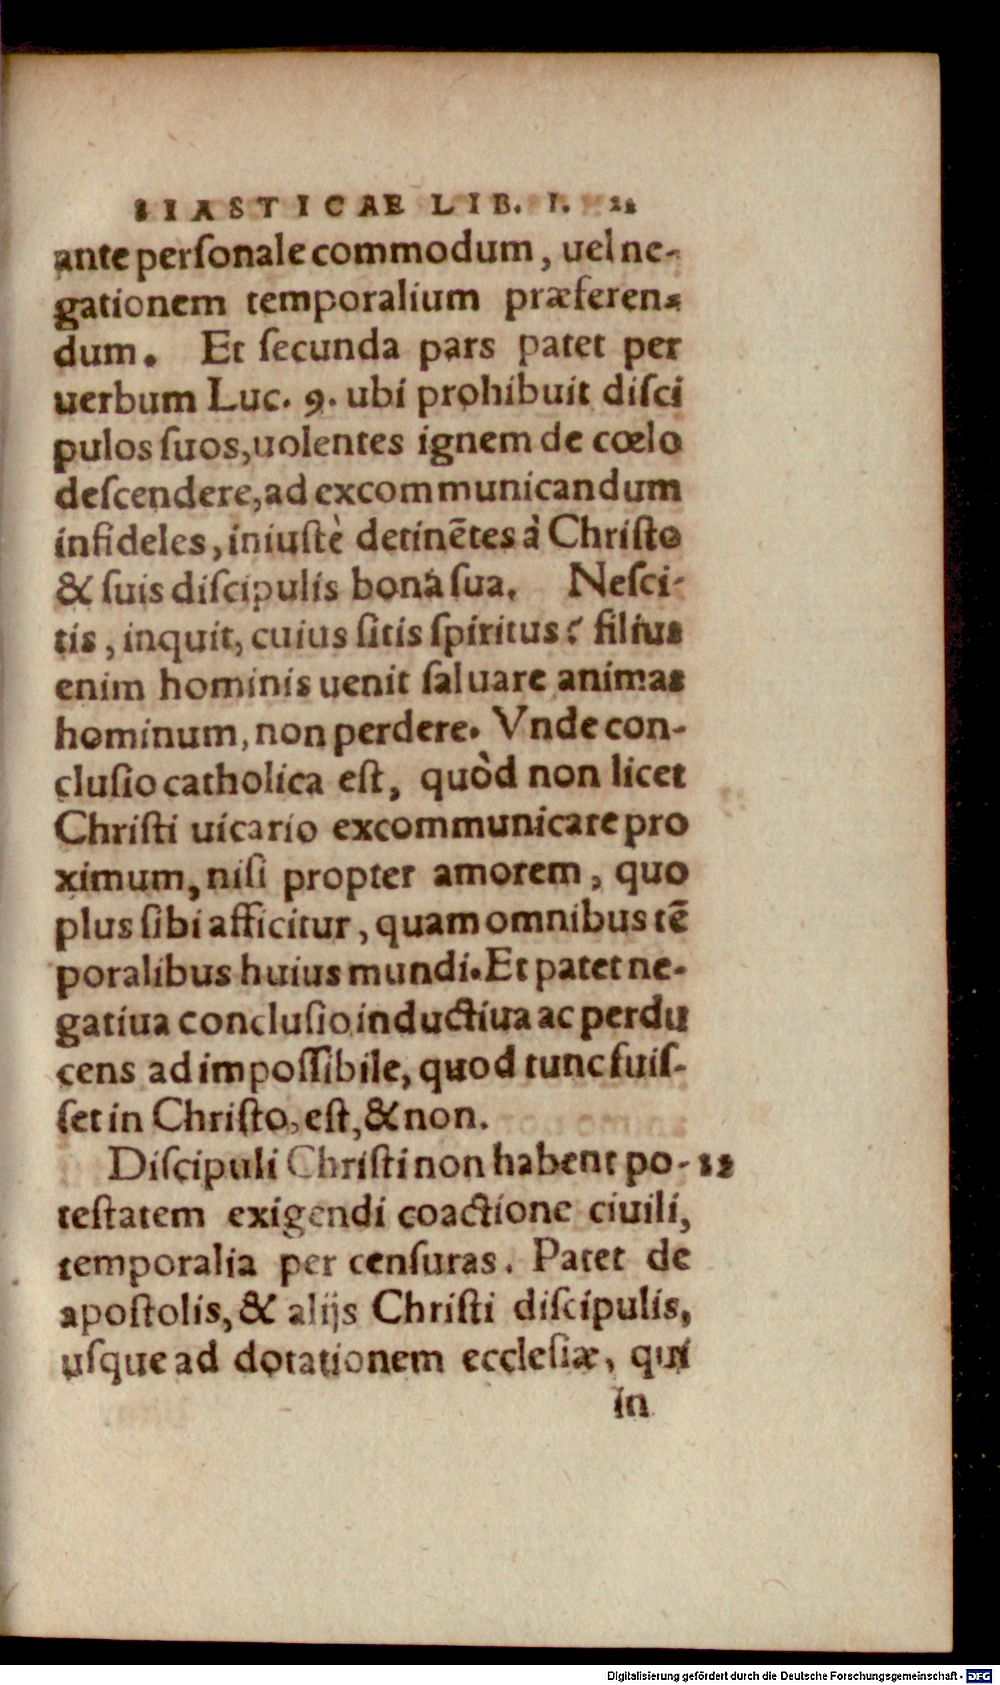 SIASTICAE LIB. I. 21
ante perſonale commodum, uel ne-
gationem temporalium præferen-
dum. Et ſecunda pars patet per
uerbum Luc. 9. ubi prohibuit diſci
pulos ſuos, uolentes ignem de cœlo
deſcendere, ad excommunicandum
infideles, iniuſtè detinētes à Chriſto
& ſuis diſcipulis bona ſua. Neſci-
tis, inquit, cuius ſitis ſpiritus: filius
enim hominis uenit ſaluare animas
hominum, non perdere. Vnde con-
cluſio catholica eſt, quòd non licet
Chriſti uicario excommunicare pro
ximum, niſi propter amorem, quo
plus ſibi afficitur, quam omnibus tē
poralibus huius mundi. Et patet ne-
gatiua concluſio inductiua ac perdu
cens ad impoſſibile, quod tunc fuiſ-
ſet in Chriſto, eſt, & non.
Diſcipuli Chriſti non habent po- 12
teſtatem exigendi coactione ciuili,
temporalia per cenſuras. Patet de
apoſtolis, & alijs Chriſti diſcipulis,
uſque ad dotationem eccleſiæ, qui
in
Digitalisierung gefördert durch die Deutsche Forschungsgemeinschaft - DFG